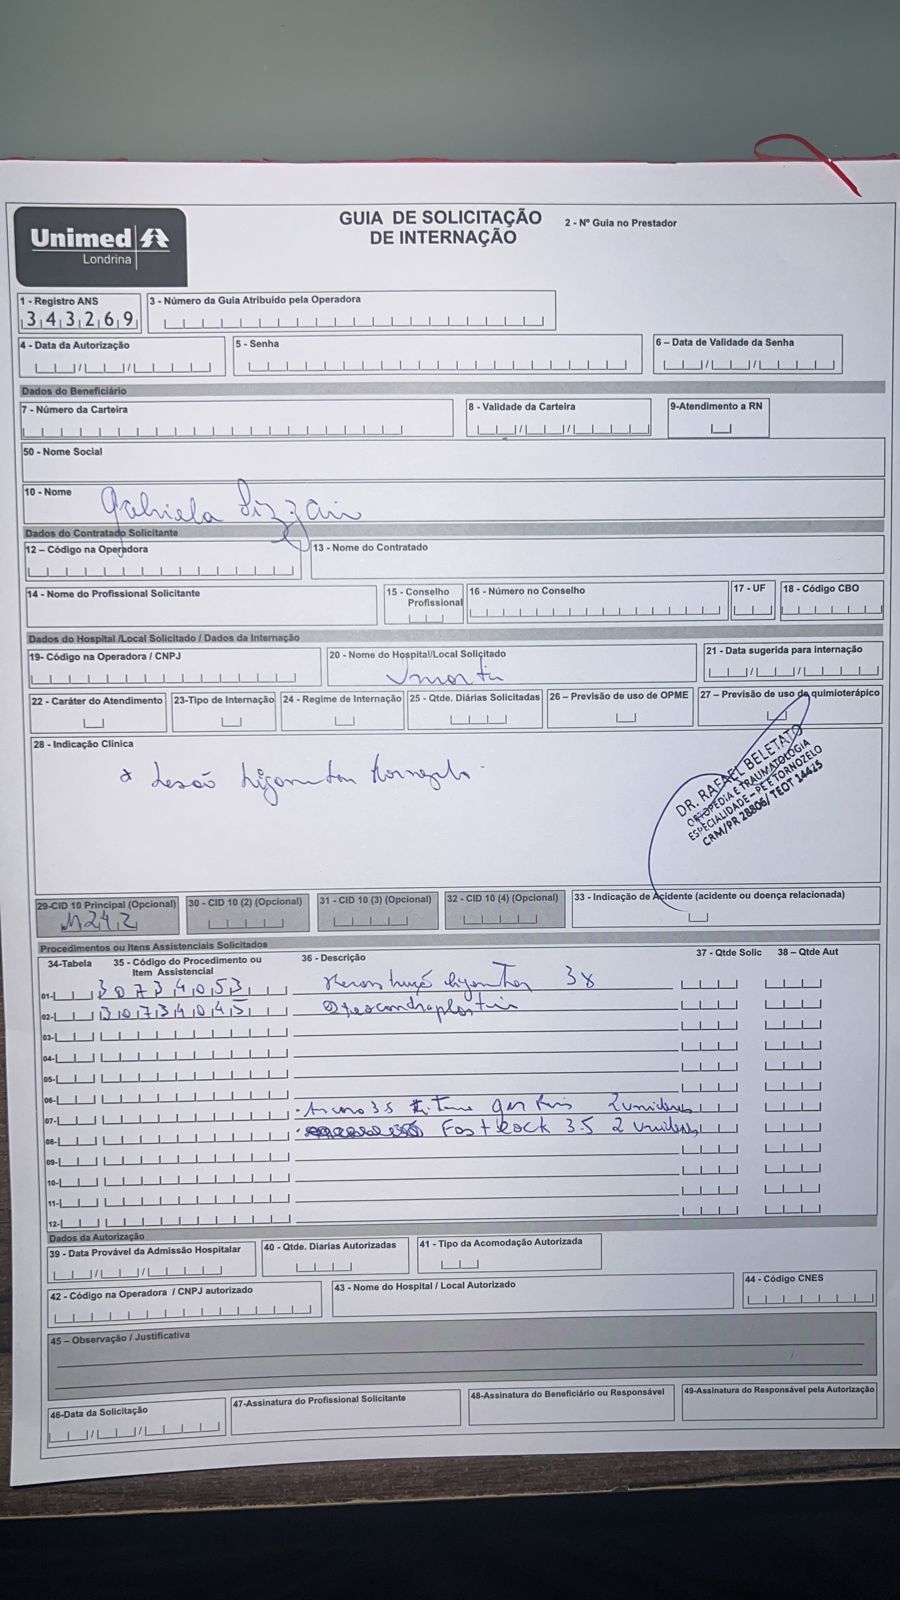 GUIA DE SOLICITAÇÃO
DE INTERNAÇÃO
2 - Nº Guia no Prestador
Unimed
Londrina
1 - Registro ANS
343269
3 - Número da Guia Atribuído pela Operadora
4 - Data da Autorização
5 - Senha
6 – Data de Validade da Senha
Dados do Beneficiário
7 - Número da Carteira
8 - Validade da Carteira
9-Atendimento a RN
50 - Nome Social
10 - Nome
Gabriela
Dados do Contratado Solicitante
12 – Código na Operadora
13 - Nome do Contratado
14 - Nome do Profissional Solicitante
15 - Conselho Profissional
16 - Número no Conselho
17 - UF
18 - Código CBO
Dados do Hospital /Local Solicitado / Dados da Internação
19- Código na Operadora / CNPJ
20 - Nome do Hospital/Local Solicitado
21 - Data sugerida para internação
22 - Caráter do Atendimento
23-Tipo de Internação
24 - Regime de Internação
25 - Qtde. Diárias Solicitadas
26 – Previsão de uso de OPME
27 – Previsão de uso de quimioterápico
28 - Indicação Clínica
* Lesão Ligamentar tornozelo
DR. RAFAEL BELETATO
ORTOPEDIA E TRAUMATOLOGIA
ESPECIALIDADE – PÉ E TORNOZELO
CRM/PR 28806/ TEOT 14425
29-CID 10 Principal (Opcional)
M242
30 - CID 10 (2) (Opcional)
31 - CID 10 (3) (Opcional)
32 - CID 10 (4) (Opcional)
33 - Indicação de Acidente (acidente ou doença relacionada)
Procedimentos ou Itens Assistenciais Solicitados
34-Tabela
35 - Código do Procedimento ou Item Assistencial
36 - Descrição
37 - Qtde Solic
38 – Qtde Aut
01- 30734053 Reconstrução ligamentar 3x
02- 30734045 Osteocondroplastia
03-
04-
05-
06-
07- 3.5 2 unidades
08- Fast Lock 3.5 2 unidades
09-
10-
11-
12-
Dados da Autorização
39 - Data Provável da Admissão Hospitalar
40 - Qtde. Diarias Autorizadas
41 - Tipo da Acomodação Autorizada
42 - Código na Operadora / CNPJ autorizado
43 - Nome do Hospital / Local Autorizado
44 - Código CNES
45 – Observação / Justificativa
46-Data da Solicitação
47-Assinatura do Profissional Solicitante
48-Assinatura do Beneficiário ou Responsável
49-Assinatura do Responsável pela Autorização